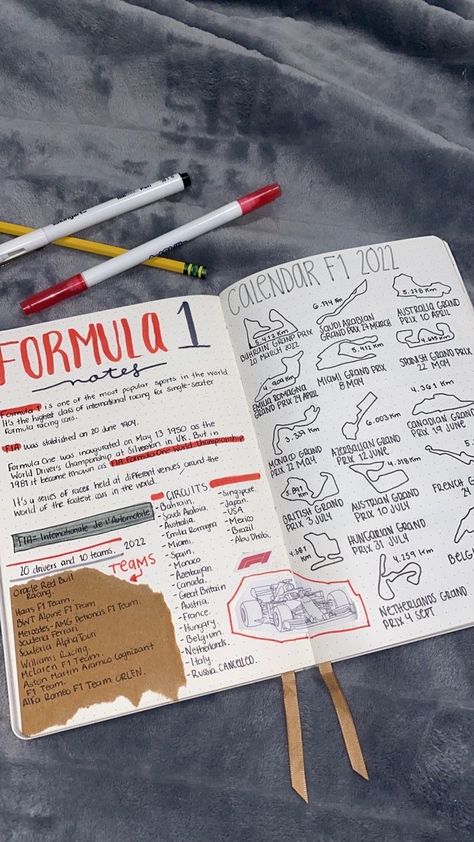 FORMULA 1
notes
Formula 1 is one of the most popular sports in the world
It's the highest class of international racing for single-seater
Formula racing cars.
FIA was stablished on 20 june 1904.
Formula One was inaugurated on May 13 1950 as the
World Drivers Championship at Silverston in UK. But in
1981 it became known as FIA Formula One World Championship
It's a series of races held at different venues around the
world of the fastest cars in the world.
FIA= Internationale de l'Automobile
20 drivers and 10 teams. 2022
TEAMS
Oracle Red Bull
Racing.
Haas F1 Team.
BWT Alpine F1 Team
Mercedes-AMG Petronas F1 Team
Scuderia Ferrari
Scuderia AlphaTauri
Williams Racing.
McLaren F1 Team.
Aston Martin Aramco Cognizant
F1 Team.
Alfa Romeo F1 Team ORLEN.
CIRCUITS
- Bahrain.
- Saudi Arabia.
- Australia.
- Emilia Romagna
- Miami.
- Spain.
- Monaco
- Azerbaijan.
- Canada.
- Great Britain
- Austria.
- France.
- Hungary.
- Belgium.
- Netherlands.
- Italy.
- Russia CANCELLED.
- Singapore.
- Japan.
- USA
- Mexico
- Brazil
- Abu Dhabi.
CALENDAR F1 2022
5.412 Km
BAHRAIN GRAND PRIX
20 MARCH 2022
6.174 Km
SAUDI ARABIAN
GRAND PRIX 27 MARCH
5.278 Km
AUSTRALIA GRAND
PRIX 10 APRIL
4.909 Km
EMILIA ROMAGNA
GRAND PRIX 24 APRIL
5.412 Km
MIAMI GRAND PRIX
8 MAY
4.675 Km
SPANISH GRAND PRIX
22 MAY
3.337 Km
MONACO GRAND PRIX
MAY
6.003 Km
AZERBAIJAN GRAND
PRIX 12 JUNE
4.361 Km
CANADIAN GRAND
PRIX 19 JUNE
5.891 Km
BRITISH GRAND
PRIX 3 JULY
4.318 Km
AUSTRIAN GRAND
PRIX 10 JULY
FRENCH G
4.381 Km
HUNGARIAN GRAND
PRIX 31 JULY
4.259 Km
NETHERLANDS GRAND
PRIX 4 SEPT.